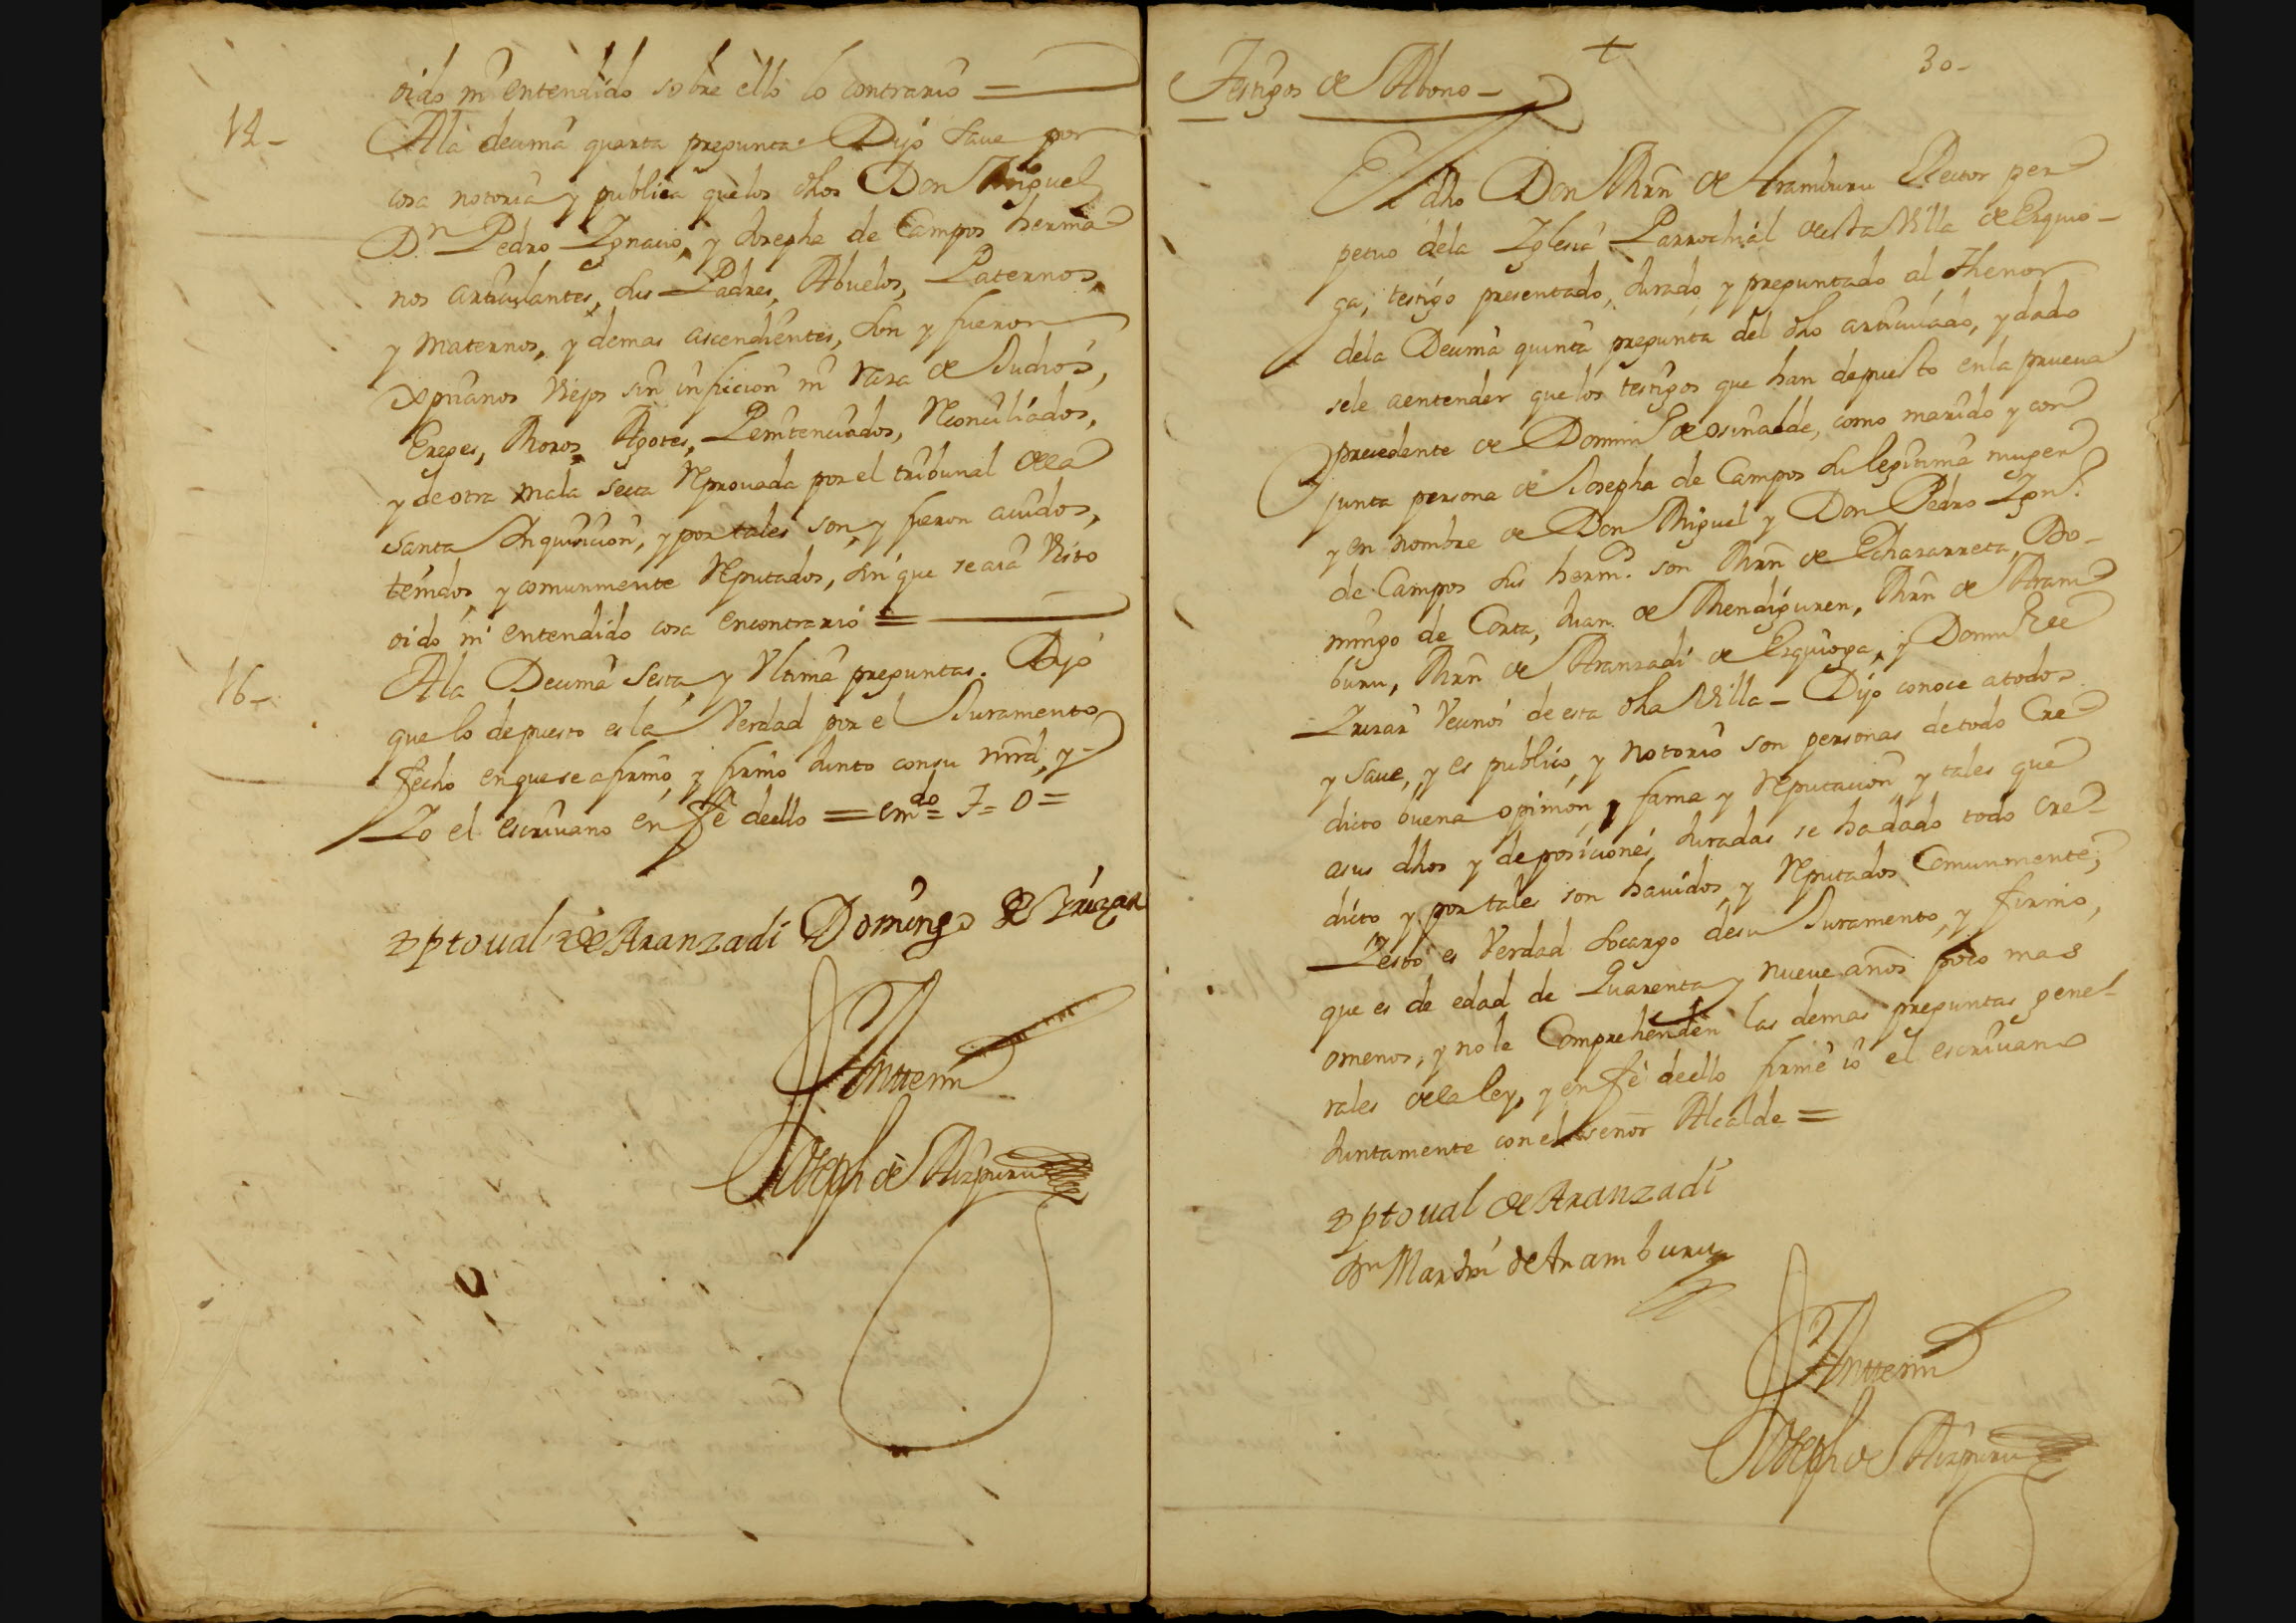 oido ni entendido sobre ello lo contrario =
14 -
Ala decima quarta pregunta Dijo save por
cosa notoria y publica que los dhos Don Miguel
Dn Pedro Ygnacio, y Josepha de Campos herma
nos articulantes, sus Padres, Abuelos, Paternos,
y Maternos, y demas ascendientes, son y fueron
Xpnanos Viejos sin inficion ni raza de Judios,
Ereges, Moros, Agotes, Penitenciados, Reconciliados,
y de otra mala secta Reprovada por el tribunal dela
Santa Inquisicion, y por tales son, y fueron avidos,
tenidos, y comunmente Reputados, sin que se aia Visto
oido ni entendido cosa encontrario =
16 -
Ala Decima sesta, y Vltima preguntas. Dijo
que lo depuesto es la Verdad por el Juramento
fecho en que se afirmo, y firmo Junto con su mrd, y
Yo el escrivano en fee dello = emdo = J = O =
Xptoual de Aranzadi Domingo de Yruzar
Antte mi
Joseph de Aizpuru
+
30 -
Testigos de Abono -
El dho Don Mrn de Aramburu Rector per
petuo dela Yglesia Parrochial desta Villa de Ezquio -
ga, testigo presentado, Jurado, y preguntado al Thenor
dela Decima quinta pregunta del dho articulado, y dado
sele aentender que los testigos que han depuesto enla prueva
precedente de Domin de Osinalde, como marido y con
junta persona de Josepha de Campos su legitima muger
y en nombre de Don Miguel y Don Pedro Ygno
de Campos sus herms son Mrn de Echazarreta, Do -
mingo de Corta, Juan de Mendiguren, Mrn de Aram
buru, Mrn de Aranzadi de Ezquioga, y Domin de
Yruzar Vecinos de esta dha Villa - Dijo conoce atodos
y save, y es publico, y notorio son personas de todo Cre
dicto buena opinion, fama y Reputacion y tales que
asus dhos y deposiciones Juradas se ha dado todo cre -
dicto y por tales son havidos, y Reputados Comunmente,
Y esto es Verdad socargo desu Juramento, y firmo,
que es de edad de Quarenta y nueve años poco mas
omenos, y no le Comprehenden las demas preguntas gene -
rales dela ley, y en fe deello firme io el escrivano
Juntamente con el señor Alcalde =
Xptoual de Aranzadi
Dn Martin de Aramburu
Antte mi
Joseph de Aizpuru